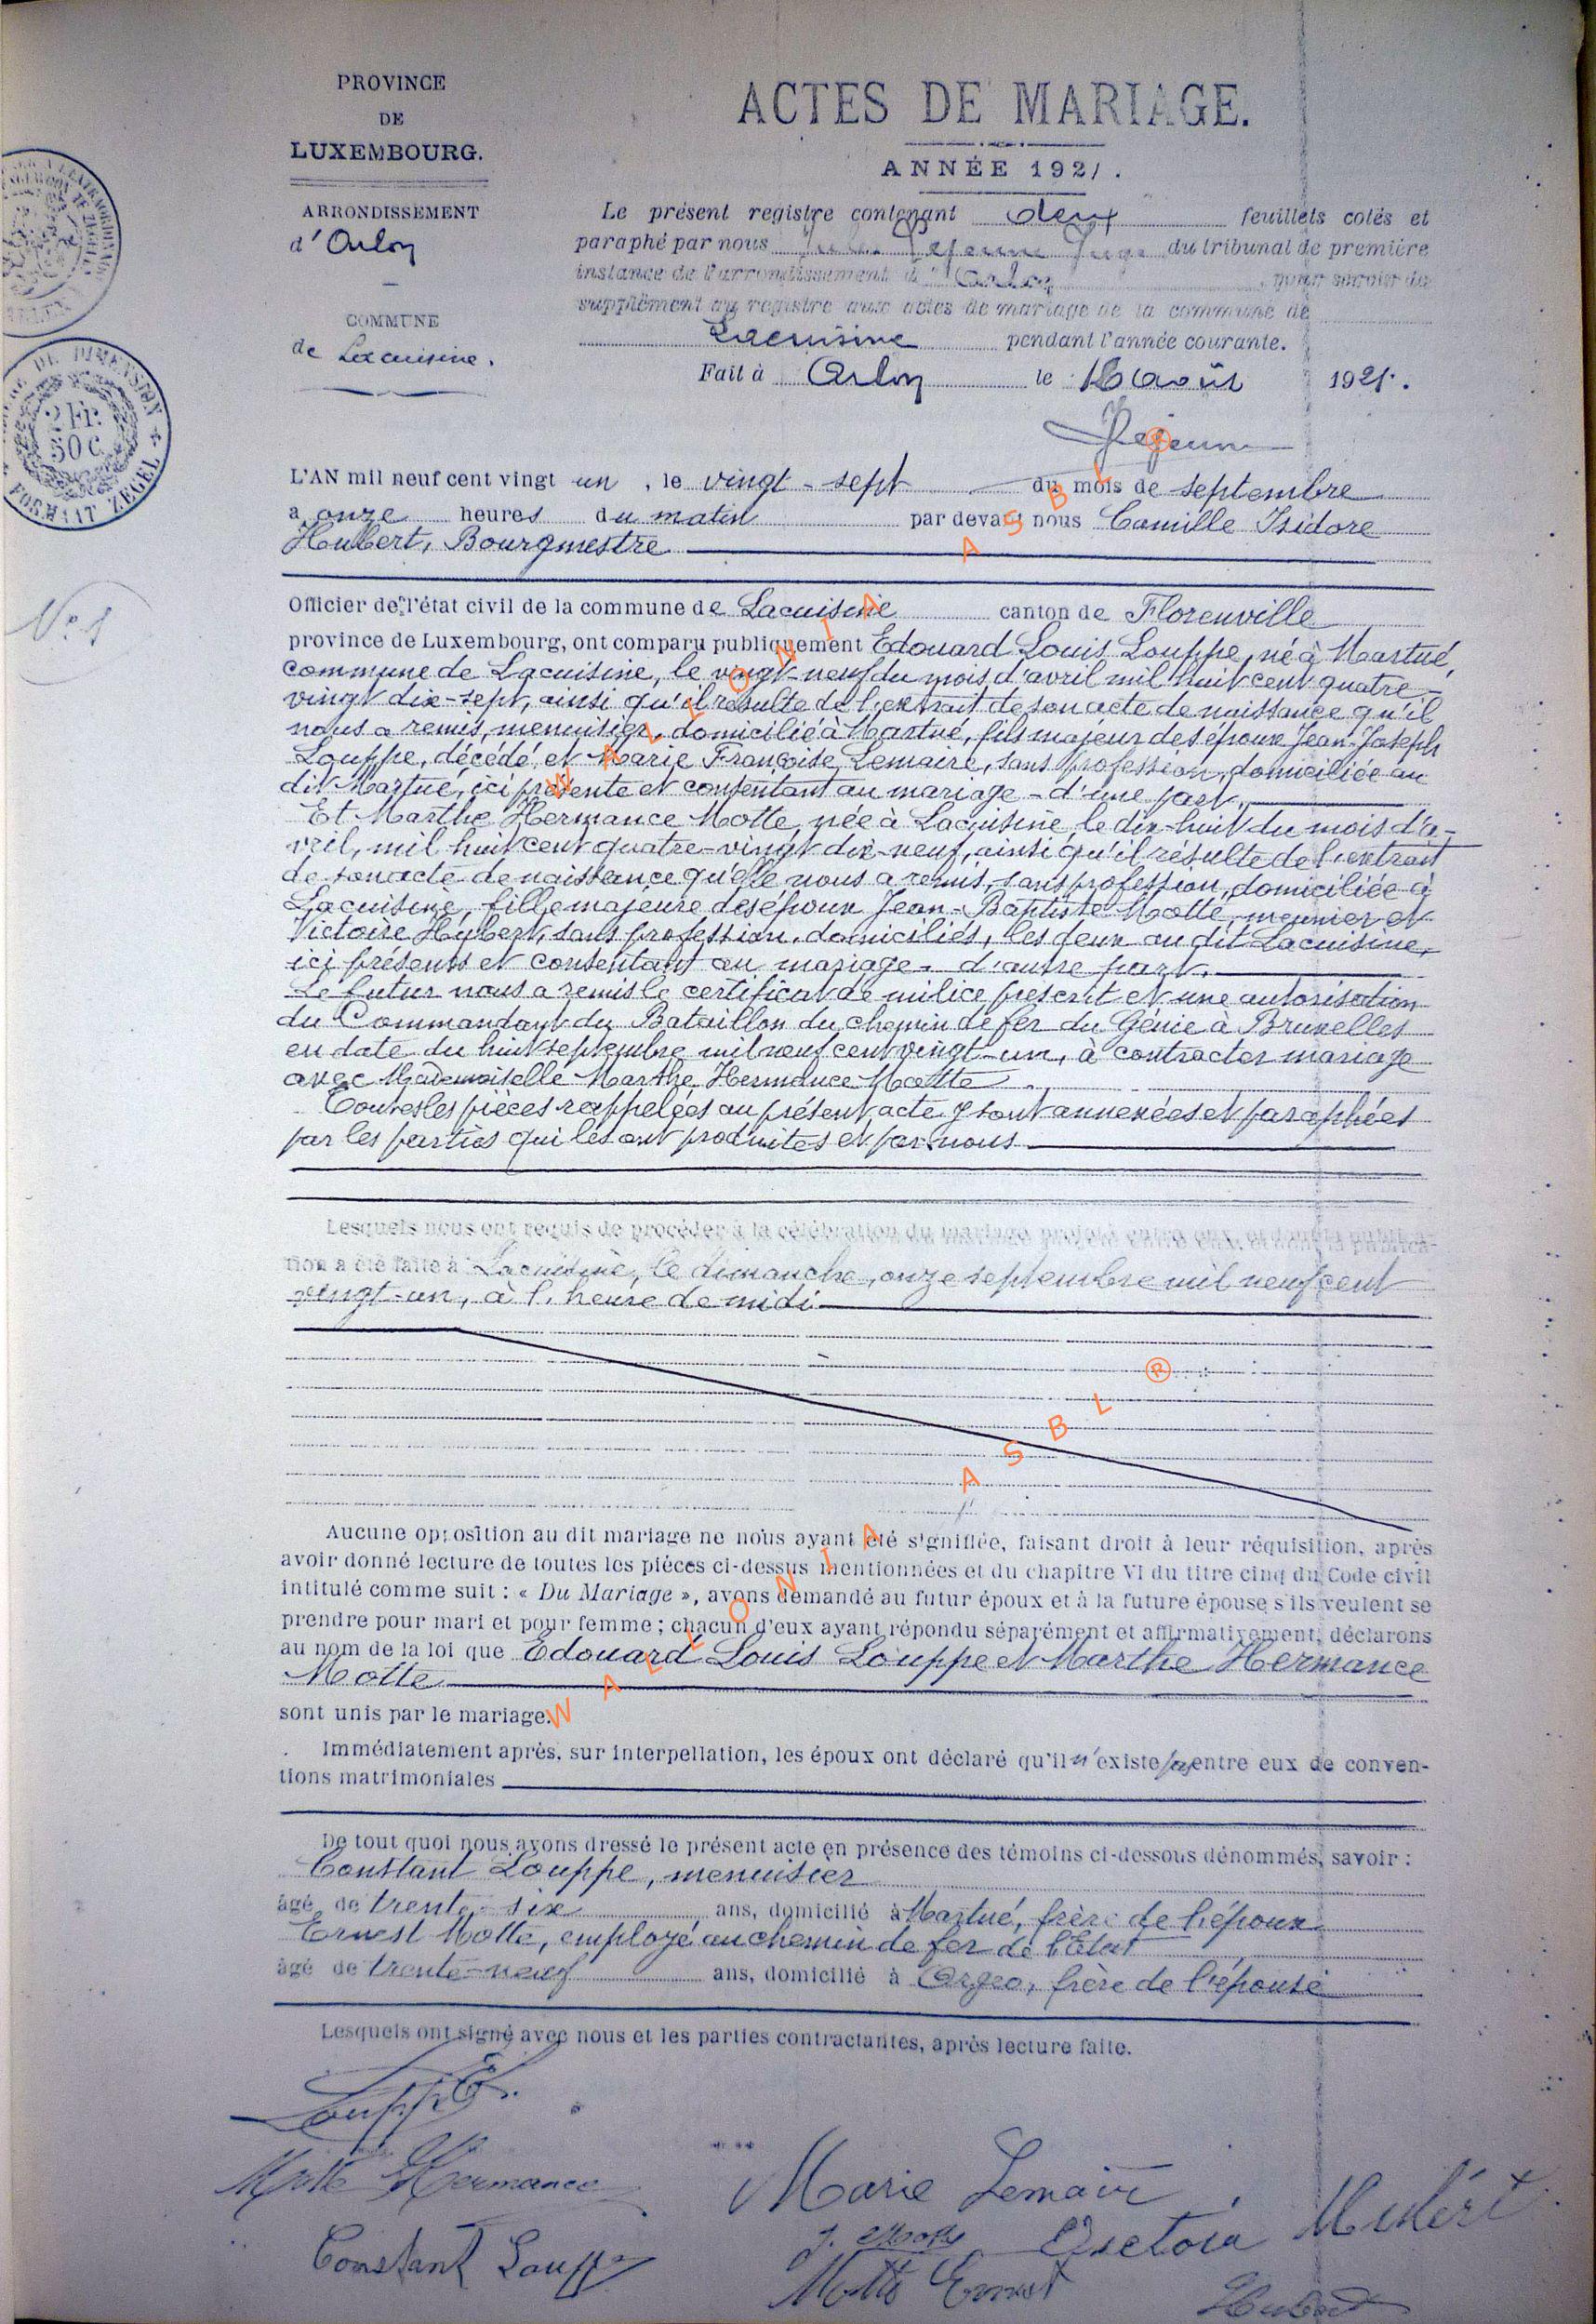 PROVINCE
DE
LUXEMBOURG.
ARRONDISSEMENT
d'Arlon
COMMUNE
de Lacuisine.
ACTES DE MARIAGE.
ANNÉE 1921.
Le présent registre contenant deux feuillets cotés et
paraphé par nous Jules Lejeune Juge du tribunal de première
instance de l'arrondissement d'Arlon, pour servir de
supplément au registre aux actes de mariage de la commune de
Lacuisine pendant l'année courante.
Fait à Arlon le 16 Août 1921.
Lejeune
TIMBRE DE DIMENSION
2 Fr.
50 C.
FORMAAT ZEGEL
No 1
L'AN mil neuf cent vingt un, le vingt-sept du mois de septembre
a onze heures du matin par devant nous Camille Isidore
Hubert, Bourgmestre
Officier de l'état civil de la commune de Lacuisine canton de Florenville
province de Luxembourg, ont comparu publiquement Edouard Louis Louppe, né à Martué,
commune de Lacuisine, le vingt-neuf du mois d'avril mil huit cent quatre-
vingt dix-sept, ainsi qu'il résulte de l'extrait de son acte de naissance qu'il
nous a remis, menuisier, domicilié à Martué, fils majeur des époux Jean-Joseph
Louppe, décédé, et Marie Françoise Lemaire, sans profession, domiciliée au
dit Martué, ici présente et consentant au mariage - d'une part.
Et Marthe Hermance Motte, née à Lacuisine, le dix-huit du mois d'a-
vril, mil huit cent quatre-vingt dix-neuf, ainsi qu'il résulte de l'extrait
de son acte de naissance qu'elle nous a remis, sans profession, domiciliée à
Lacuisine, fille majeure des époux Jean-Baptiste Motte, meunier et
Victoire Hubert, sans profession, domiciliés, les deux au dit Lacuisine,
ici présents et consentant au mariage - d'autre part.
Le futur nous a remis le certificat de milice prescrit et une autorisation
du Commandant du Bataillon du chemin de fer du Génie à Bruxelles
en date du huit septembre mil neuf cent vingt-un, à contracter mariage
avec Mademoiselle Marthe Hermance Motte.
Toutes les pièces rappelées au présent acte y sont annexées et paraphées
par les parties qui les ont produites et par nous
Lesquels nous ont requis de procéder à la célébration du mariage projeté entre eux et dont la publica-
tion a été faite à Lacuisine, le dimanche, onze septembre mil neuf cent
vingt-un, à l'heure de midi
Aucune opposition au dit mariage ne nous ayant été signifiée, faisant droit à leur réquisition, après
avoir donné lecture de toutes les pièces ci-dessus mentionnées et du chapitre VI du titre cinq du Code civil
intitulé comme suit : « Du Mariage », avons demandé au futur époux et à la future épouse s'ils veulent se
prendre pour mari et pour femme ; chacun d'eux ayant répondu séparément et affirmativement, déclarons
au nom de la loi que Edouard Louis Louppe et Marthe Hermance
Motte
sont unis par le mariage.
Immédiatement après, sur interpellation, les époux ont déclaré qu'il n'existe pas entre eux de conven-
tions matrimoniales
De tout quoi nous avons dressé le présent acte en présence des témoins ci-dessous dénommés, savoir :
Constant Louppe, menuisier
âgé de trente-six ans, domicilié à Martué, frère de l'époux
Ernest Motte, employé au chemin de fer de l'Etat
âgé de trente-neuf ans, domicilié à Orgeo, frère de l'épouse
Lesquels ont signé avec nous et les parties contractantes, après lecture faite.
Louppe E.
Motte Hermance
Marie Lemaire
J. Motte
Victoire Hubert
Constant Louppe
Motte Ernest
Hubert
WALLONIA ASBL ®
WALLONIA ASBL ®